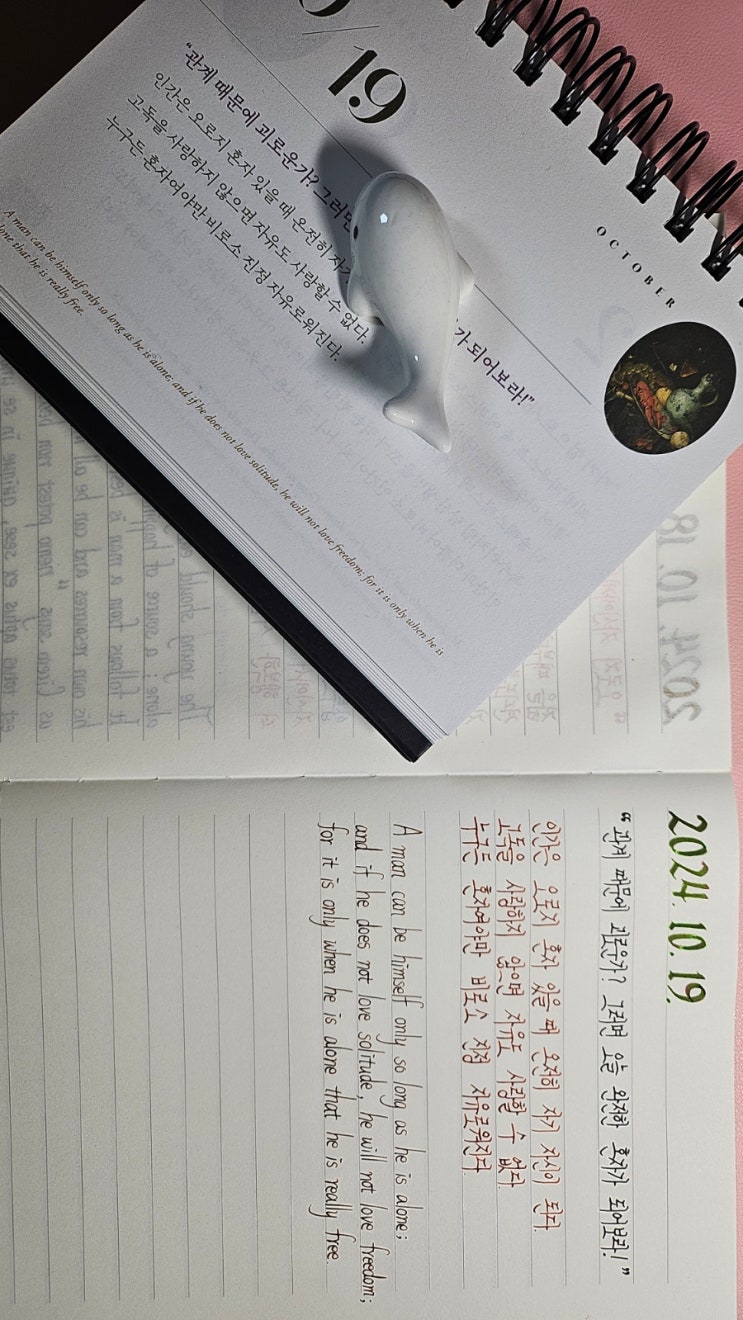 /19
OCTOBER
"관계 때문에 괴로운가? 그러면
가 되어보라!"
인간은 오로지 혼자 있을 때 온전히 자기
고독을 사랑하지 않으면 자유도 사랑할 수 없다.
누구든 혼자여야만 비로소 진정 자유로워진다.
A man can be himself only so long as he is alone; and if he does not love solitude, he will not love freedom; for it is only when he is
alone that he is really free.
2024. 10. 18
2024. 10. 19.
"관계 때문에 괴로운가? 그러면 오늘 완전한 혼자가 되어보라!"
인간은 오로지 혼자 있을 때 온전히 자기 자신이 된다.
고독을 사랑하지 않으면 자유도 사랑할 수 없다.
누구든 혼자여야만 비로소 진정 자유로워진다.
A man can be himself only so long as he is alone;
and if he does not love solitude, he will not love freedom;
for it is only when he is alone that he is really free